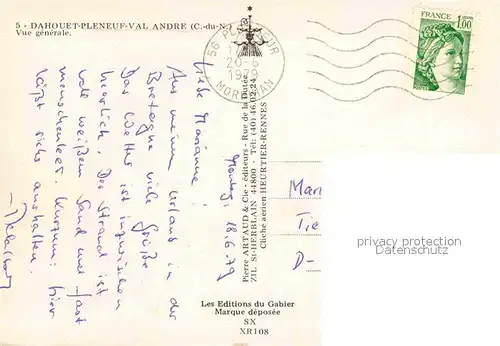 5 - DAHOUET-PLENEUF-VAL ANDRE (C.-du-N.)
Vue générale.
56 PL
20-6
1979
MORBIHAN
FRANCE
1,00
POSTES
Montag, 18.6.79
Liebe Marianne!
Aus meinem Urlaub in der
Bretagne viele Grüße.
Das Wetter ist inzwischen
herrlich. Der Strand ist
voll weißem Sand und fast
menschenleer. Kurzum: hier
läßt sichs aushalten.
Pierre ARTAUD & Cie - éditeurs - Rue de la Dutée
ZIL St-HERBLAIN 44800 - Tél: (40) 46.02.24
Cliché aérien HEURTIER-RENNES
Mar
Tie
D-
privacy protection
Datenschutz
Les Editions du Gabier
Marque déposée
SX
XR108